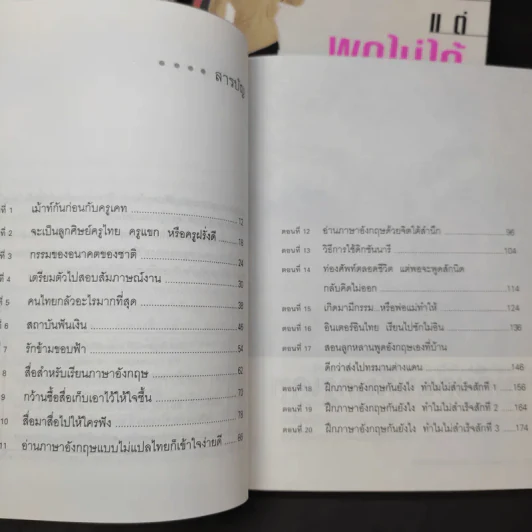 แต่
พูดไม่ได้
สารบัญ
ที่ 1 เม้าท์กันก่อนกับครูเคท 12
ที่ 2 จะเป็นลูกศิษย์ครูไทย ครูแขก หรือครูฝรั่งดี 18
ที่ 3 กรรมของอนาคตของชาติ 24
ที่ 4 เตรียมตัวไปสอบสัมภาษณ์งาน 30
ที่ 5 คนไทยกลัวอะไรมากที่สุด 38
ที่ 6 สถาบันพันเงิน 46
ที่ 7 รักข้ามขอบฟ้า 54
ที่ 8 สื่อสำหรับเรียนภาษาอังกฤษ 62
9 กว้านซื้อสื่อเก็บเอาไว้ให้ใจชื้น 70
10 สื่อมาสื่อไปให้ใครฟัง 78
11 อ่านภาษาอังกฤษแบบไม่แปลไทยก็เข้าใจง่ายดี 88
ตอนที่ 12 อ่านภาษาอังกฤษด้วยจิตใต้สำนึก 96
ตอนที่ 13 วิธีการใช้ดิกชันนารี 104
ตอนที่ 14 ท่องศัพท์ตลอดชีวิต แต่พอจะพูดสักนิด
กลับคิดไม่ออก 114
ตอนที่ 15 เกิดมามีกรรม...หรือพ่อแม่ทำให้ 124
ตอนที่ 16 อินเตอร์อินไทย เรียนไปชักไม่อิน 136
ตอนที่ 17 สอนลูกหลานพูดอังกฤษเองที่บ้าน
ดีกว่าส่งไปทรมานต่างแดน 146
ตอนที่ 18 ฝึกภาษาอังกฤษกันยังไง ทำไมไม่สำเร็จสักที 1 156
ตอนที่ 19 ฝึกภาษาอังกฤษกันยังไง ทำไมไม่สำเร็จสักที 2 164
ตอนที่ 20 ฝึกภาษาอังกฤษกันยังไง ทำไมไม่สำเร็จสักที 3 174